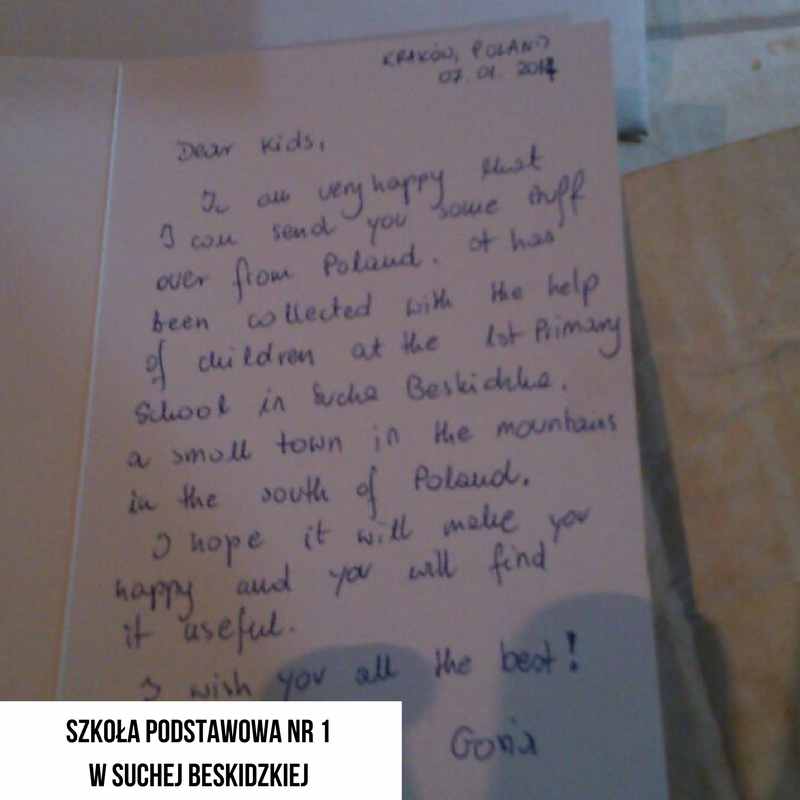 KRAKÓW, POLAND
07.01.2014
Dear Kids,
I am very happy that
I can send you some stuff
over from Poland. It has
been collected with the help
of children at the 1st Primary
School in Sucha Beskidzka.
a small town in the mountains
in the south of Poland.
I hope it will make you
happy and you will find
it useful.
I wish you all the best!
SZKOŁA PODSTAWOWA NR 1
W SUCHEJ BESKIDZKIEJ